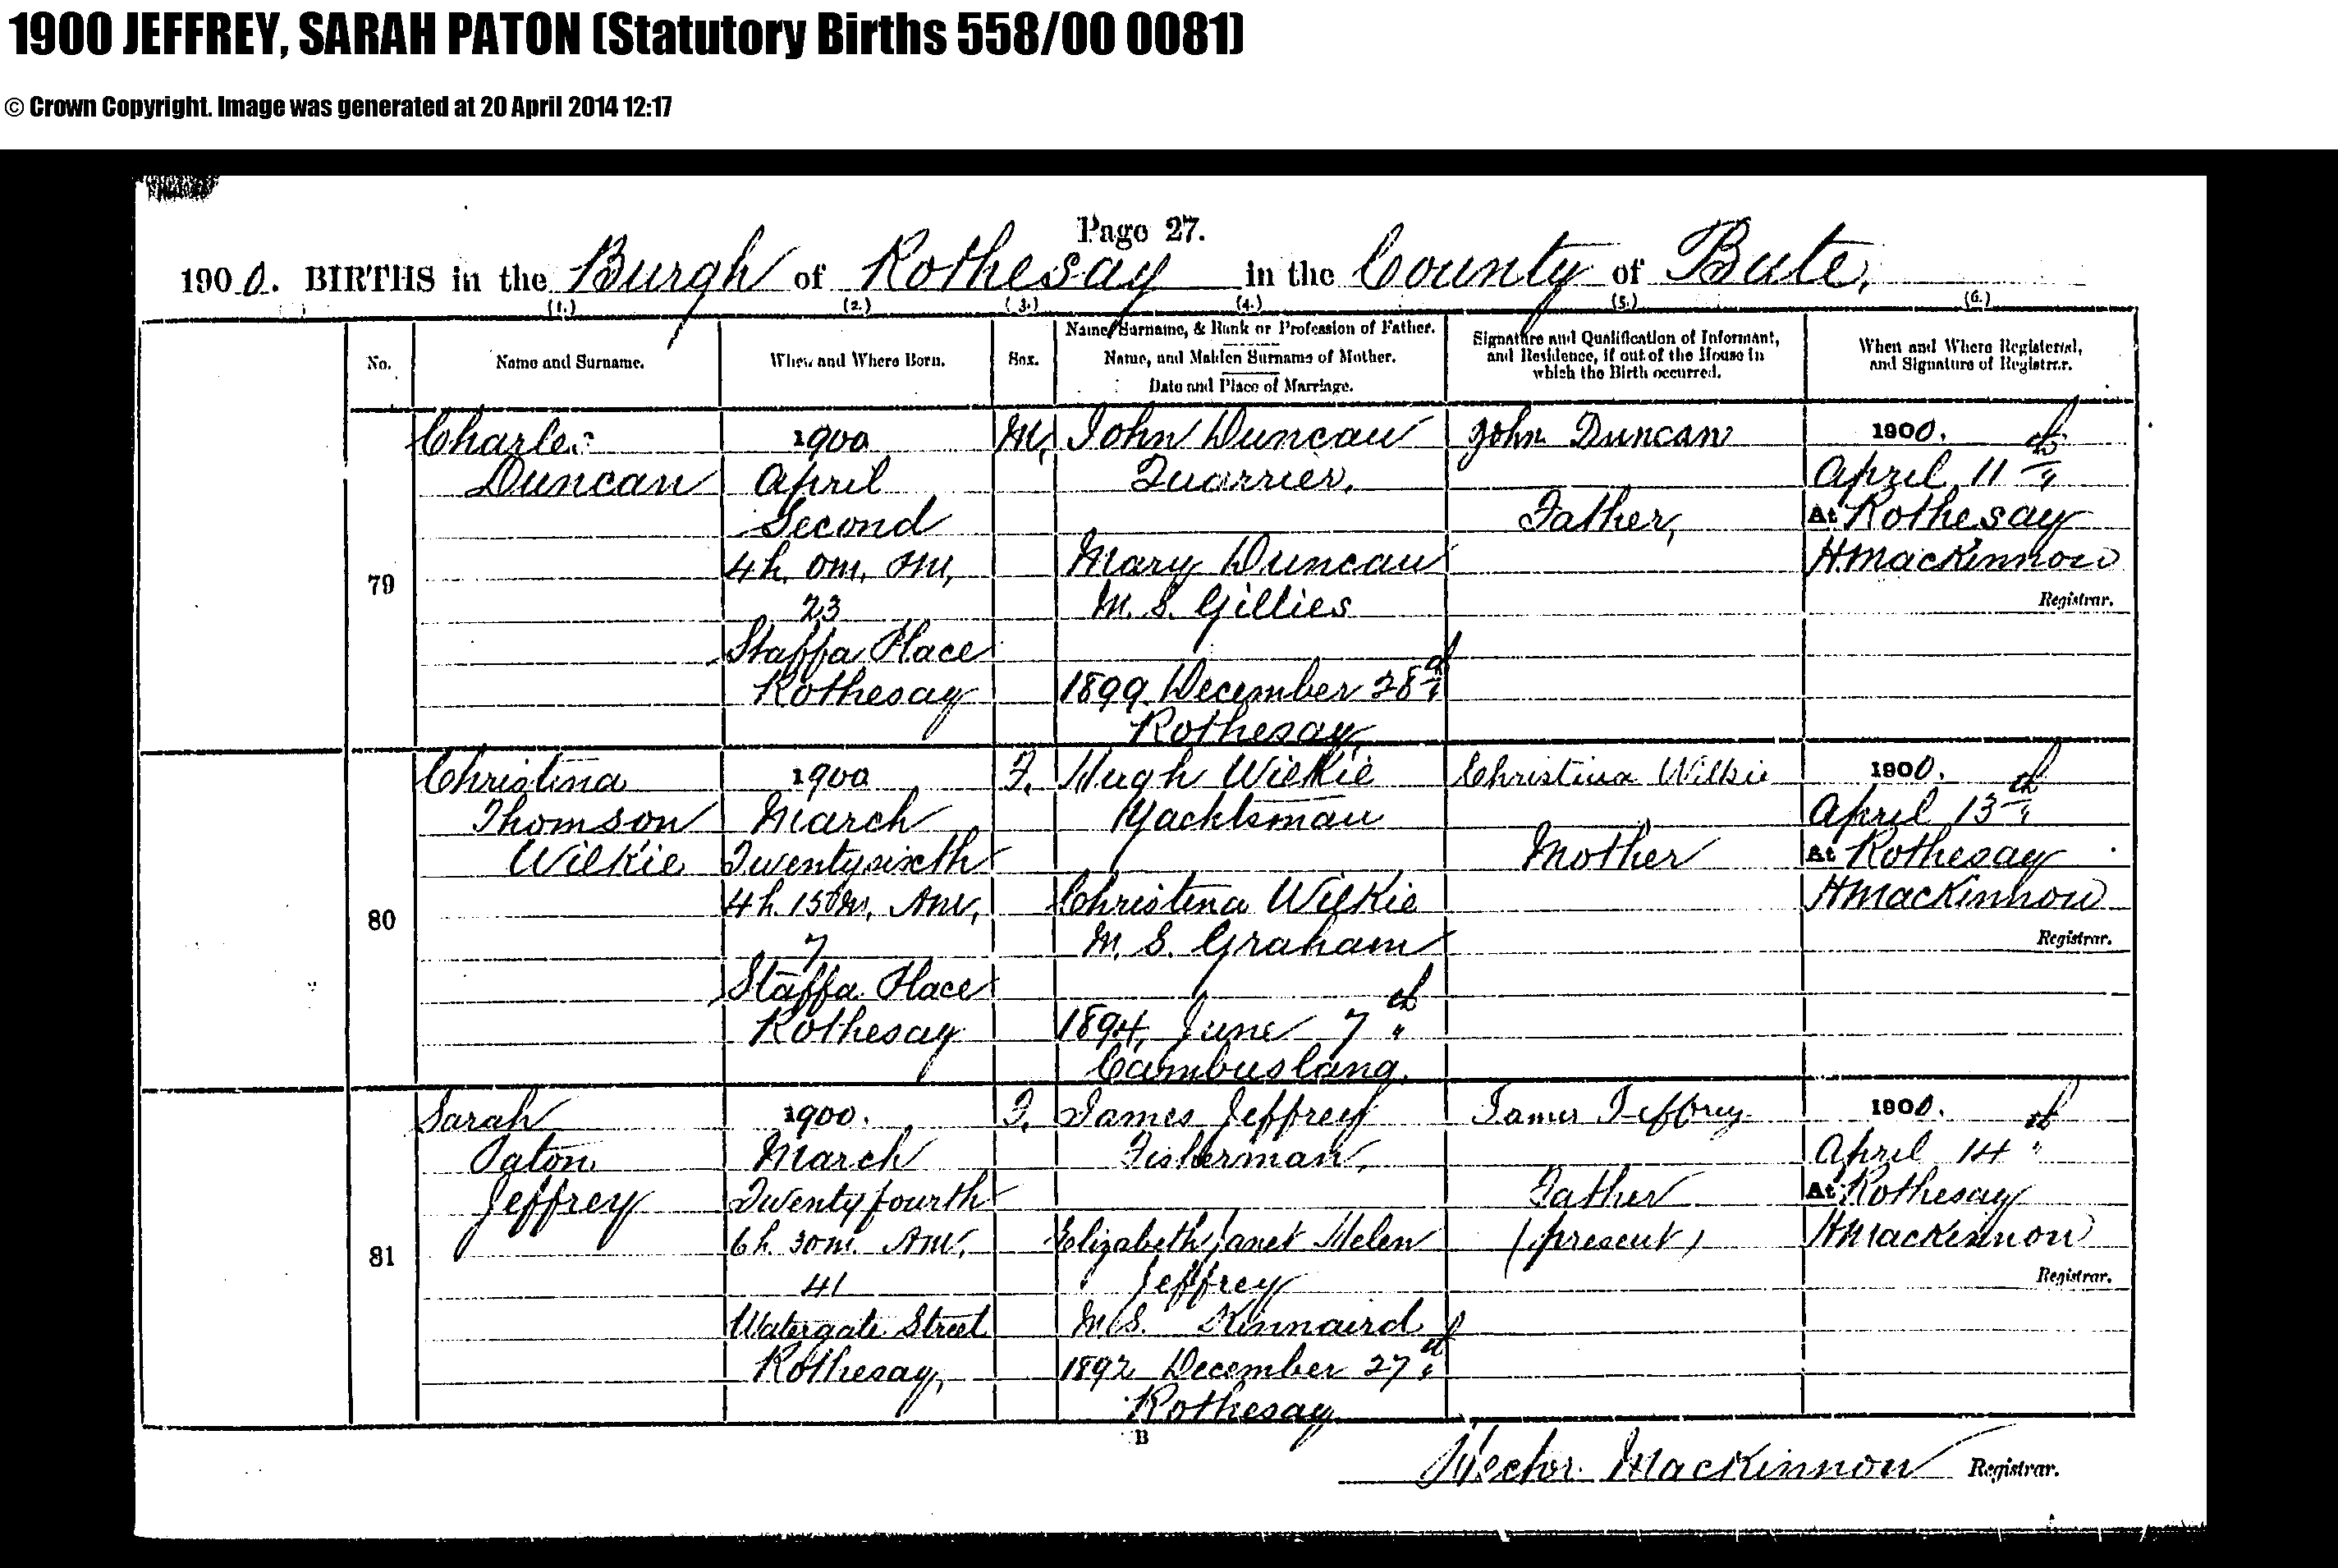 1900 JEFFREY, SARAH PATON (Statutory Births 558/00 0081)
© Crown Copyright. Image was generated at 20 April 2014 12:17
Page 27.
1900. BIRTHS in the Burgh of Rothesay in the County of Bute.
(1.) (2.) (3.) (4.) (5.) (6.)
No.
Name and Surname.
When and Where Born.
Sex.
Name, Surname, & Rank or Profession of Father.
Name, and Maiden Surname of Mother.
Date and Place of Marriage.
Signature and Qualification of Informant,
and Residence, if out of the House in
which the Birth occurred.
When and Where Registered,
and Signature of Registrar.
79
Charles
Duncan
1900
April
Second
4h. 0m.
23
Staffa Place
Rothesay
M.
John Duncan
Quarrier.
Mary Duncan
M. S. Gillies
1899 December 28th
Rothesay.
John Duncan
Father,
1900.
April 11th
At Rothesay
H. MacKinnon
Registrar.
80
Christina
Thomson
Wilkie
1900
March
Twentysixth
4h. 15m. AM.
7
Staffa Place
Rothesay
F.
Hugh Wilkie
Yachtsman
Christina Wilkie
M. S. Graham
1894, June 7th
Cambuslang.
Christina Wilkie
Mother
1900.
April 13th
At Rothesay
H MacKinnon
Registrar.
81
Sarah
Paton
Jeffrey
1900.
March
Twenty fourth
6h. 30m. AM.
41
Watergate Street
Rothesay,
F.
James Jeffrey
Fisherman.
Elizabeth Janet Helen
Jeffrey
M. S. Kinnaird
1892 December 27th
Rothesay
James Jeffrey
Father
(present)
1900.
April 14th
At Rothesay
H MacKinnon
Registrar.
B
Hector MacKinnon Registrar.